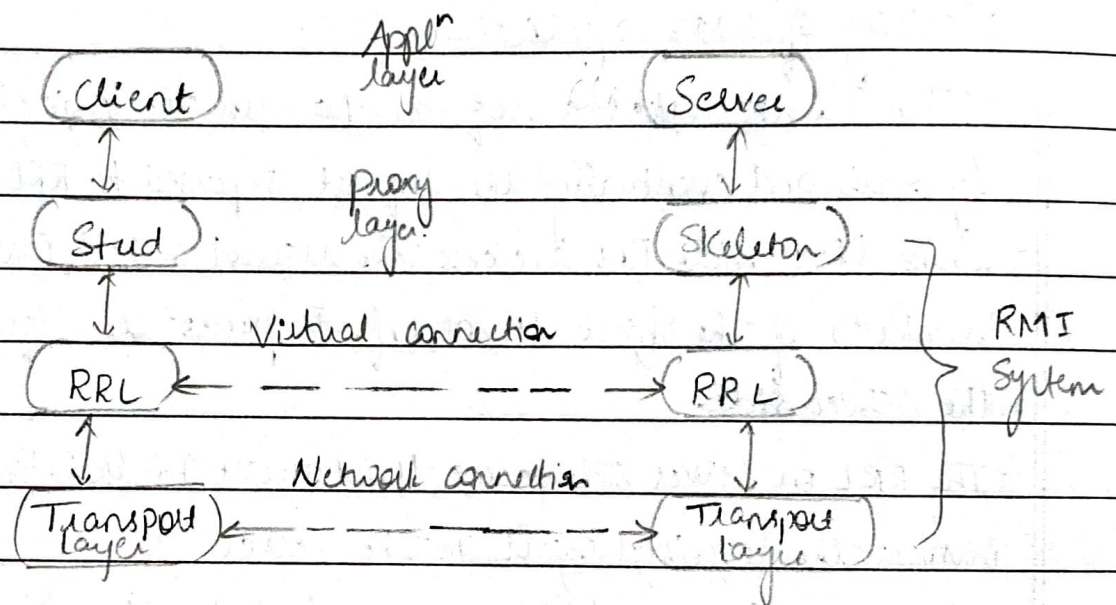 Appln
layer
Client
Server
Proxy
layer
Stud
Skeleton
Virtual connection
RMI
System
RRL
RRL
Network connection
Transport
layer
Transport
layer